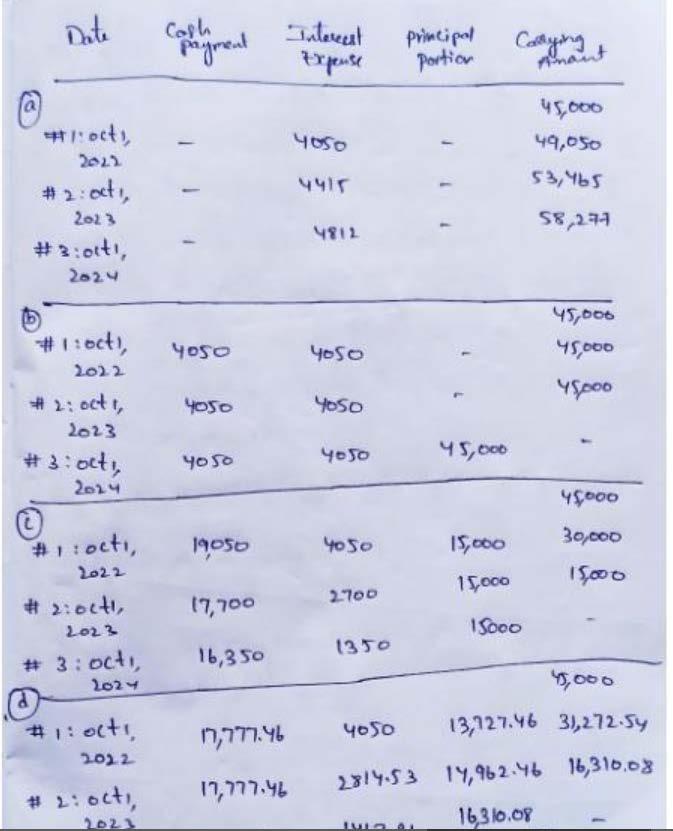 Date Cash payment Interest Expense principal portion Carrying Amount
(a) 45,000
#1: oct 1, 2022 - 4050 - 49,050
#2: oct 1, 2023 - 4415 - 53,465
#3: oct 1, 2024 - 4812 - 58,277
(b) 45,000
#1: oct 1, 2022 4050 4050 - 45,000
#2: oct 1, 2023 4050 4050 - 45,000
#3: oct 1, 2024 4050 4050 45,000 -
(c) 45,000
#1: oct 1, 2022 19,050 4050 15,000 30,000
#2: oct 1, 2023 17,700 2700 15,000 15,000
#3: oct 1, 2024 16,350 1350 15000 -
(d) 45,000
#1: oct 1, 2022 17,777.46 4050 13,727.46 31,272.54
#2: oct 1, 2023 17,777.46 2814.53 14,962.46 16,310.08
16,310.08 -